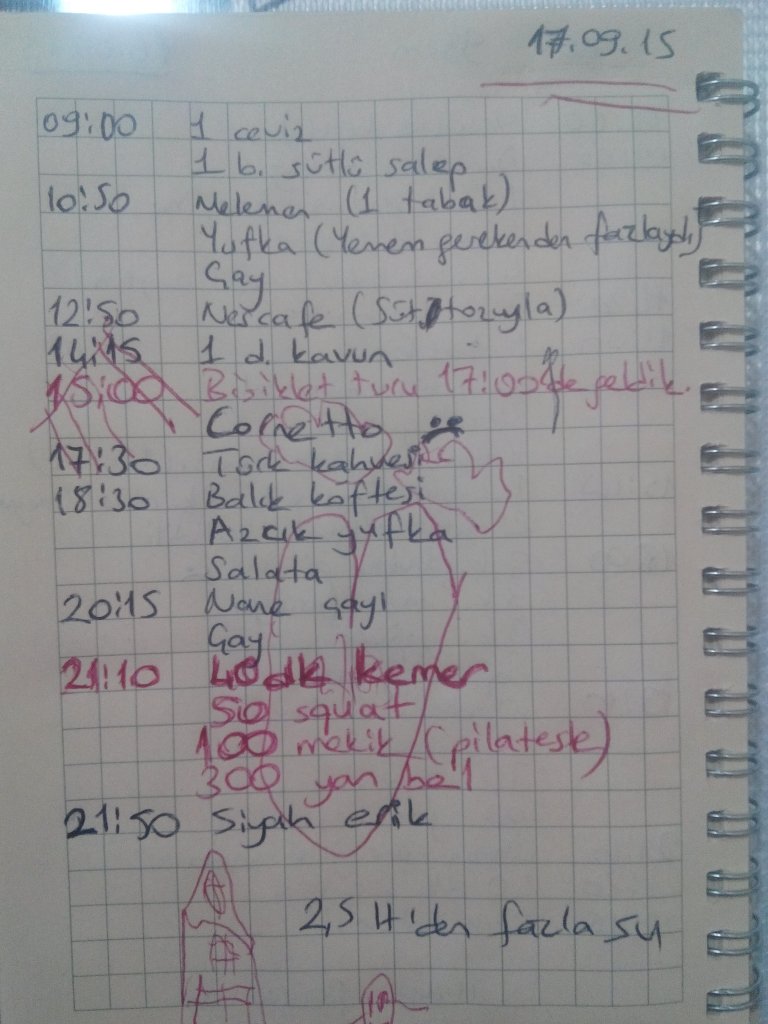 17.09.15
09:00 1 ceviz
1 b. sütlü salep
10:50 Melemen (1 tabak)
Yufka (Yemem gerekenden fazlaydı)
Çay
12:50 Nescafe (Süt tozuyla)
14:15 1 d. kavun
15:00 Bisiklet turu 17:00'de geldik.
Cornetto
17:30 Türk kahvesi
18:30 Balık köftesi
Azcık yufka
Salata
20:15 Nane çayı
Çay
21:10 40 dk kemer
50 squat
100 mekik (pilateste)
300 yan bel
21:50 Siyah erik
2,5 lt'den fazla su